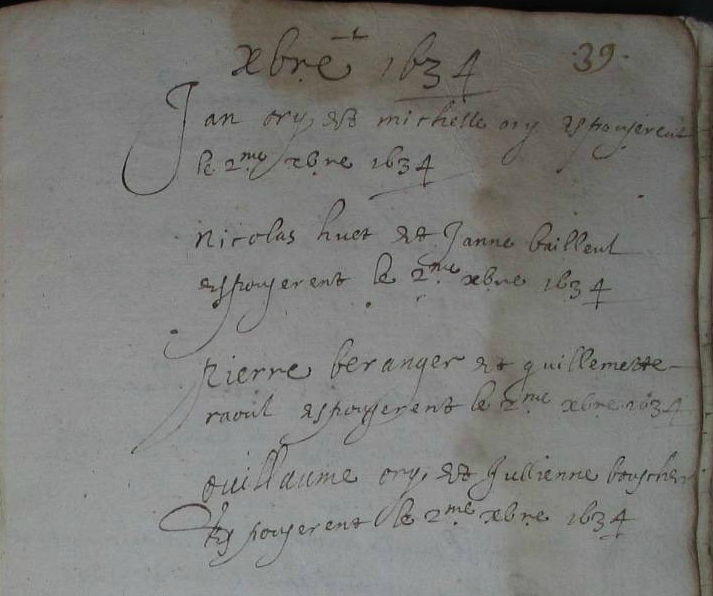 xbre 1634 39
Jan ory et michelle ory espouserent
le 2me xbre 1634
Nicolas huet et Janne bailleul
espouserent le 2me xbre 1634
pierre beranger et guillemette
raoul espouserent le 2me xbre 1634
guillaume ory et Jullienne
espouserent le 2me xbre 1634